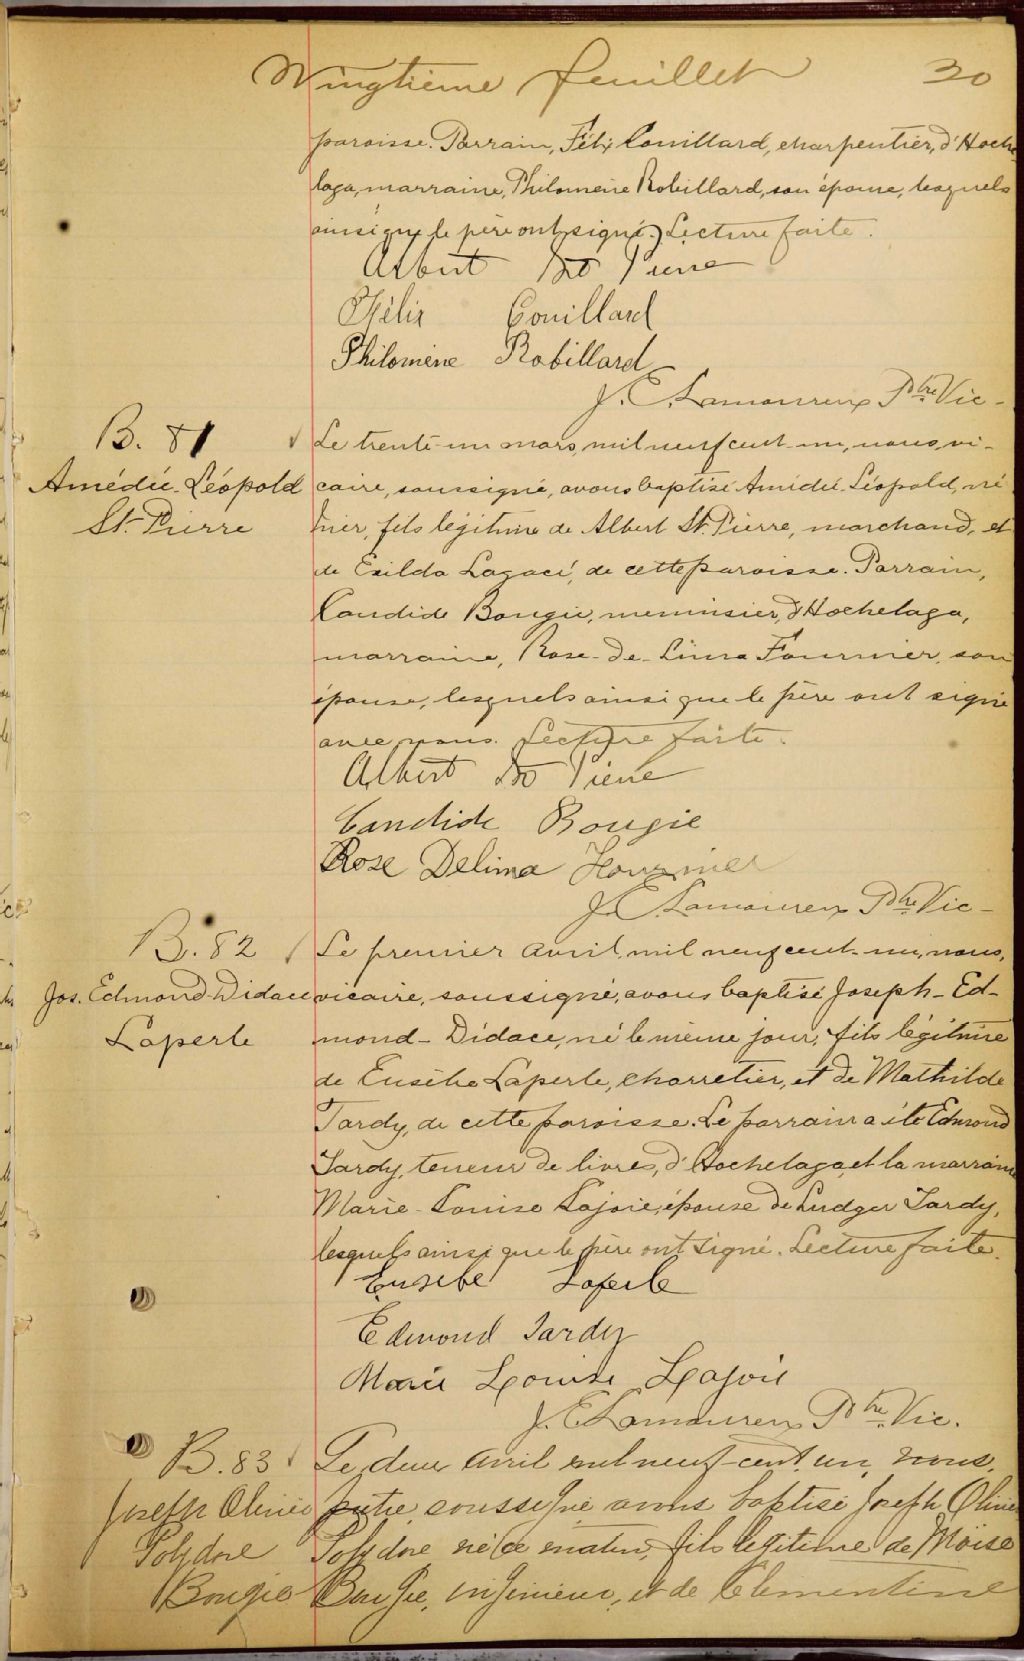 Vingtième feuillet 20
paroisse. Parrain, Félix Couillard, charpentier, d'Hoche-
laga, marraine, Philomène Robillard, son épouse, lesquels
ainsi que le père ont signé. Lecture faite.
Albert St Pierre
Félix Couillard
Philomène Robillard
J. E. Lamoureux Ptre Vic-
B. 81
Amédée-Léopold
St-Pierre
Le trente-un mars, mil neuf cent-un, nous, vi-
caire, soussigné, avons baptisé Amédée-Léopold, né
hier, fils légitime de Albert St. Pierre, marchand, et
de Exilda Lagacé, de cette paroisse. Parrain,
Candide Bougie, menuisier, d'Hochelaga,
marraine, Rose-de-Lima Fournier, son
épouse, lesquels ainsi que le père ont signé
avec nous. Lecture faite.
Albert St Pierre
Candide Bougie
Rose Delima Fournier
J. E. Lamoureux Ptre Vic-
B. 82
Jos. Edmond-Didace
Laperle
Le premier avril, mil neuf cent-un, nous,
vicaire, soussigné, avons baptisé Joseph-Ed-
mond-Didace, né le même jour, fils légitime
de Eusèbe Laperle, charretier, et de Mathilde
Tardy, de cette paroisse. Le parrain a été Edmond
Tardy, teneur de livres, d'Hochelaga, et la marraine
Marie-Louise Lajoie, épouse de Ludger Tardy,
lesquels ainsi que le père ont signé. Lecture faite.
Eusebe Laperle
Edmond Tardy
Marie Louise Lajoie
J. E. Lamoureux Ptre Vic.
B. 83
Joseph Olivier
Polydore
Bougie
Le deux avril mil neuf-cent un, nous,
prêtre soussigné avons baptisé Joseph Olivier
Polydore né ce matin, fils légitime de Moïse
Bougie, ingénieur, et de Clémentine